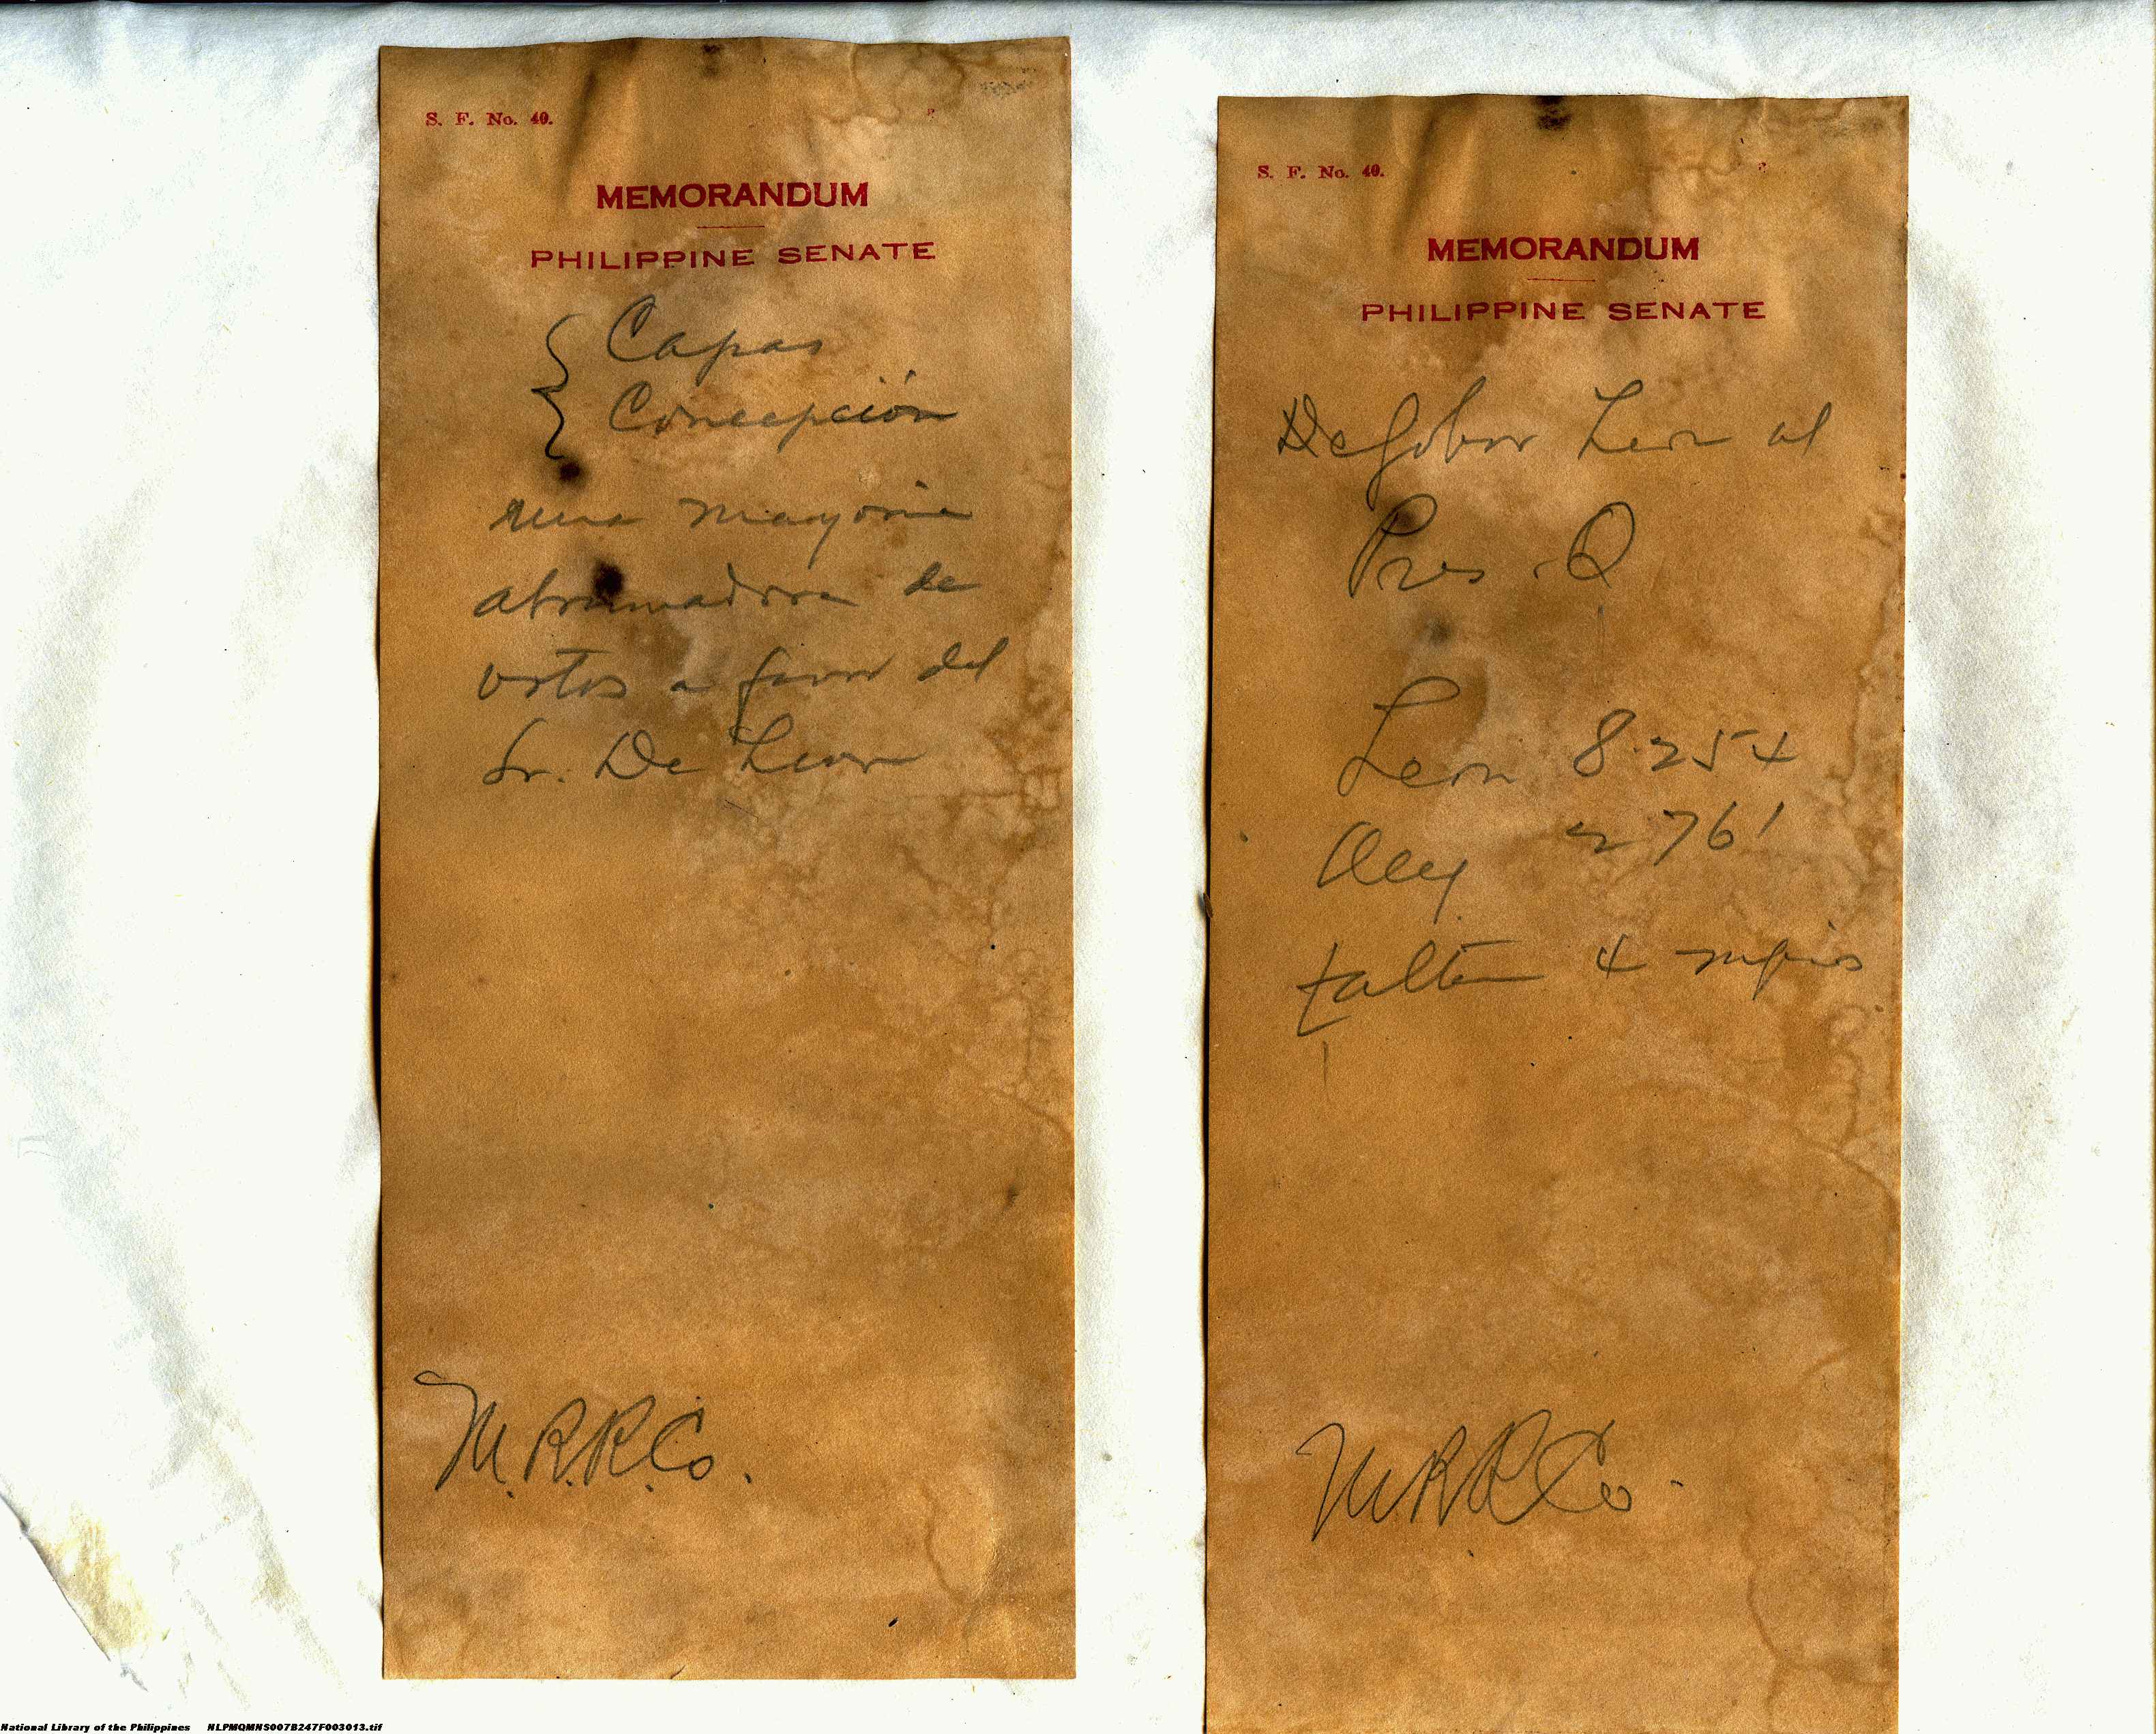 S. F. No. 40.
MEMORANDUM
PHILIPPINE SENATE
Capas
Concepción
una mayoria
abrumadora de
votos a favor del
Sr. De Leon
M.R.R.Co.
S. F. No. 40.
MEMORANDUM
PHILIPPINE SENATE
De Gobor Leon al
Pres. Q
Leon 8.254
2761
faltan 4 mpios
M.R.R.Co.
National Library of the Philippines NLPMQMNS007B247F003013.tif